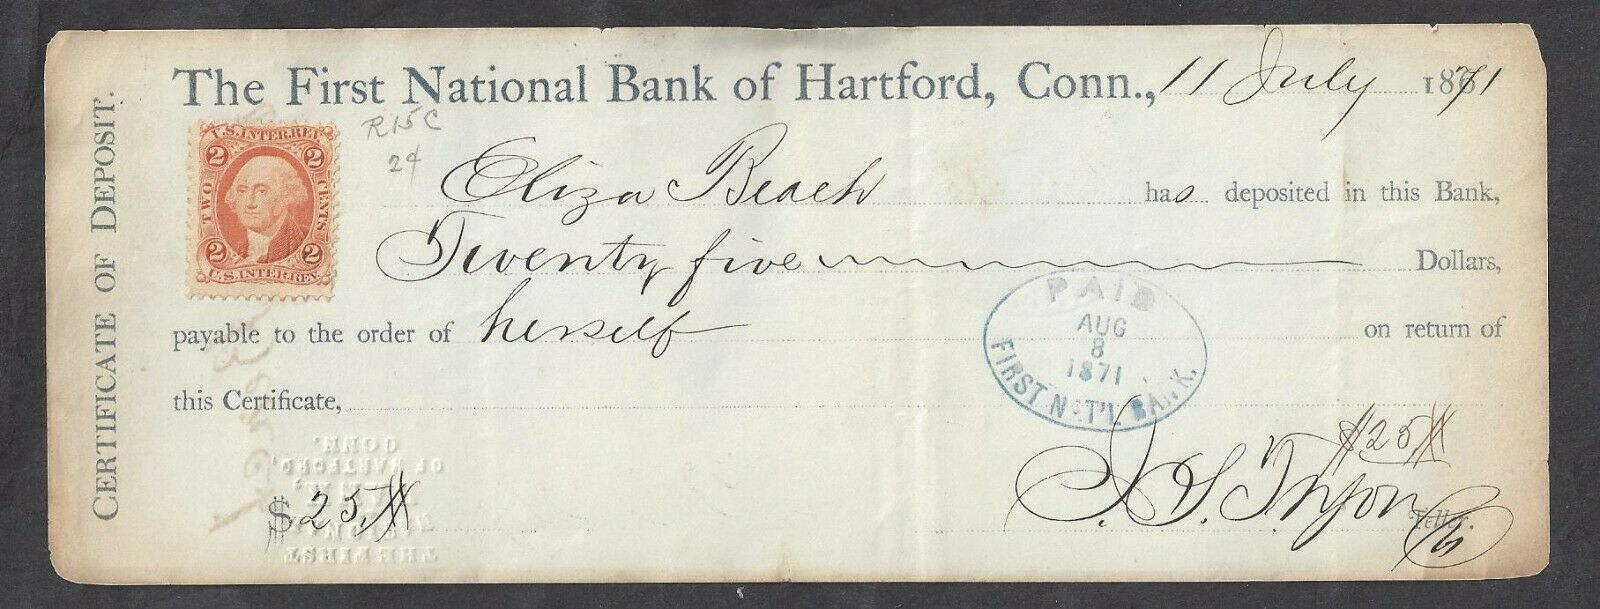 CERTIFICATE OF DEPOSIT.
The First National Bank of Hartford, Conn., 11 July 1871
R15C
2¢
U.S. INTER. REV.
2 2
TWO CENTS
2 2
U.S. INTER. REV.
Eliza Beach has deposited in this Bank,
Twenty five Dollars,
payable to the order of herself on return of
this Certificate,
PAID
AUG
8
1871
FIRST NAT'L BANK.
$25
CONN.
OF HARTFORD
BANK
THE FIRST
$ 25,
J. S. Tryon Teller.